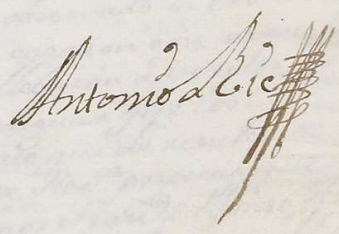 Antonio de Ric